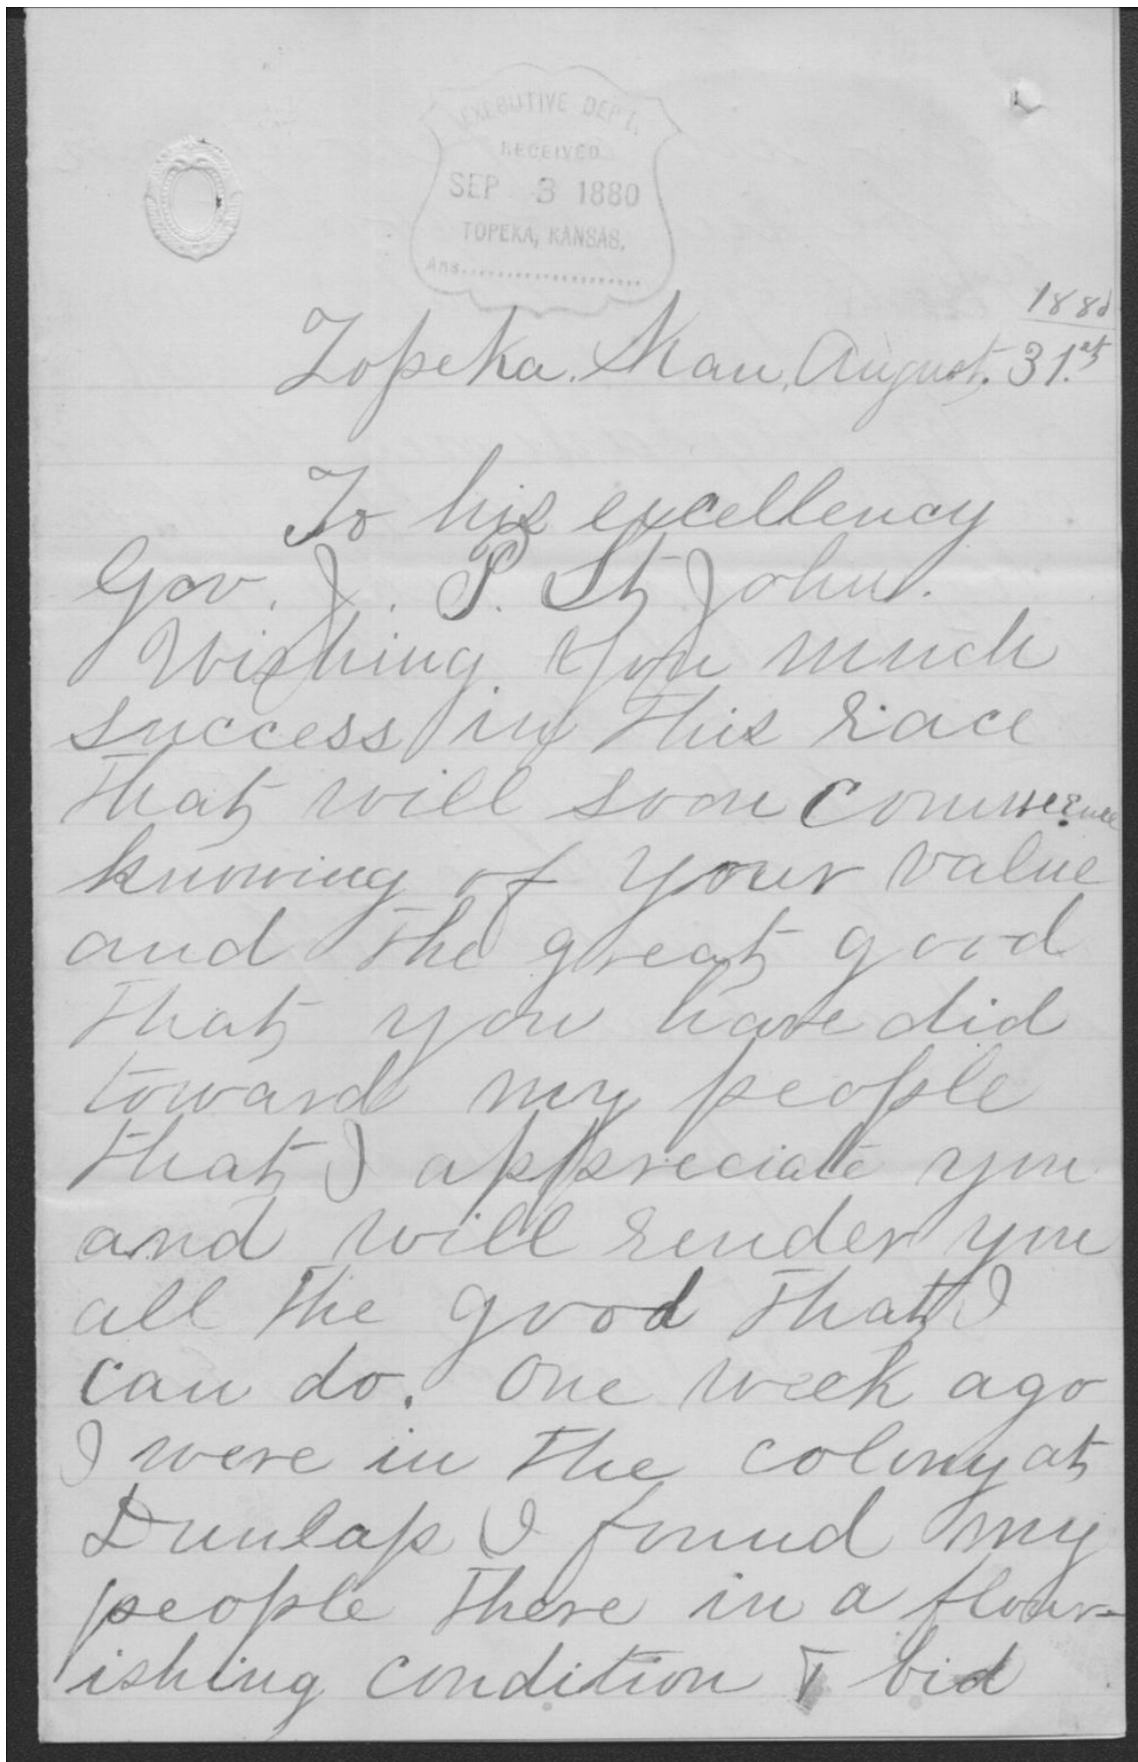 EXECUTIVE DEPT.
RECEIVED
SEP 3 1880
TOPEKA, KANSAS.
Ans.....................
1880
Topeka. Kan, August. 31.st
To his excellency
Gov. J. P. St John.
Wishing you much
success in this race
that will soon commence
knowing of your value
and the great good
that you have did
toward my people
that I appreciate you
and will render you
all the good that I
can do. One week ago
I were in the colony at
Dunlap I found my
people there in a flour-
ishing condition I bid